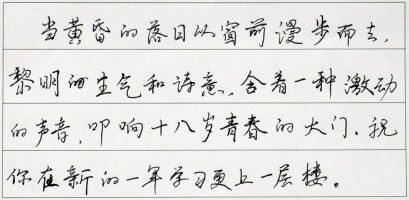 当黄昏的落日从窗前漫步而去,
黎明的生气和诗意,含着一种激动
的声音,叩响十八岁青春的大门.祝
你在新的一年学习更上一层楼。